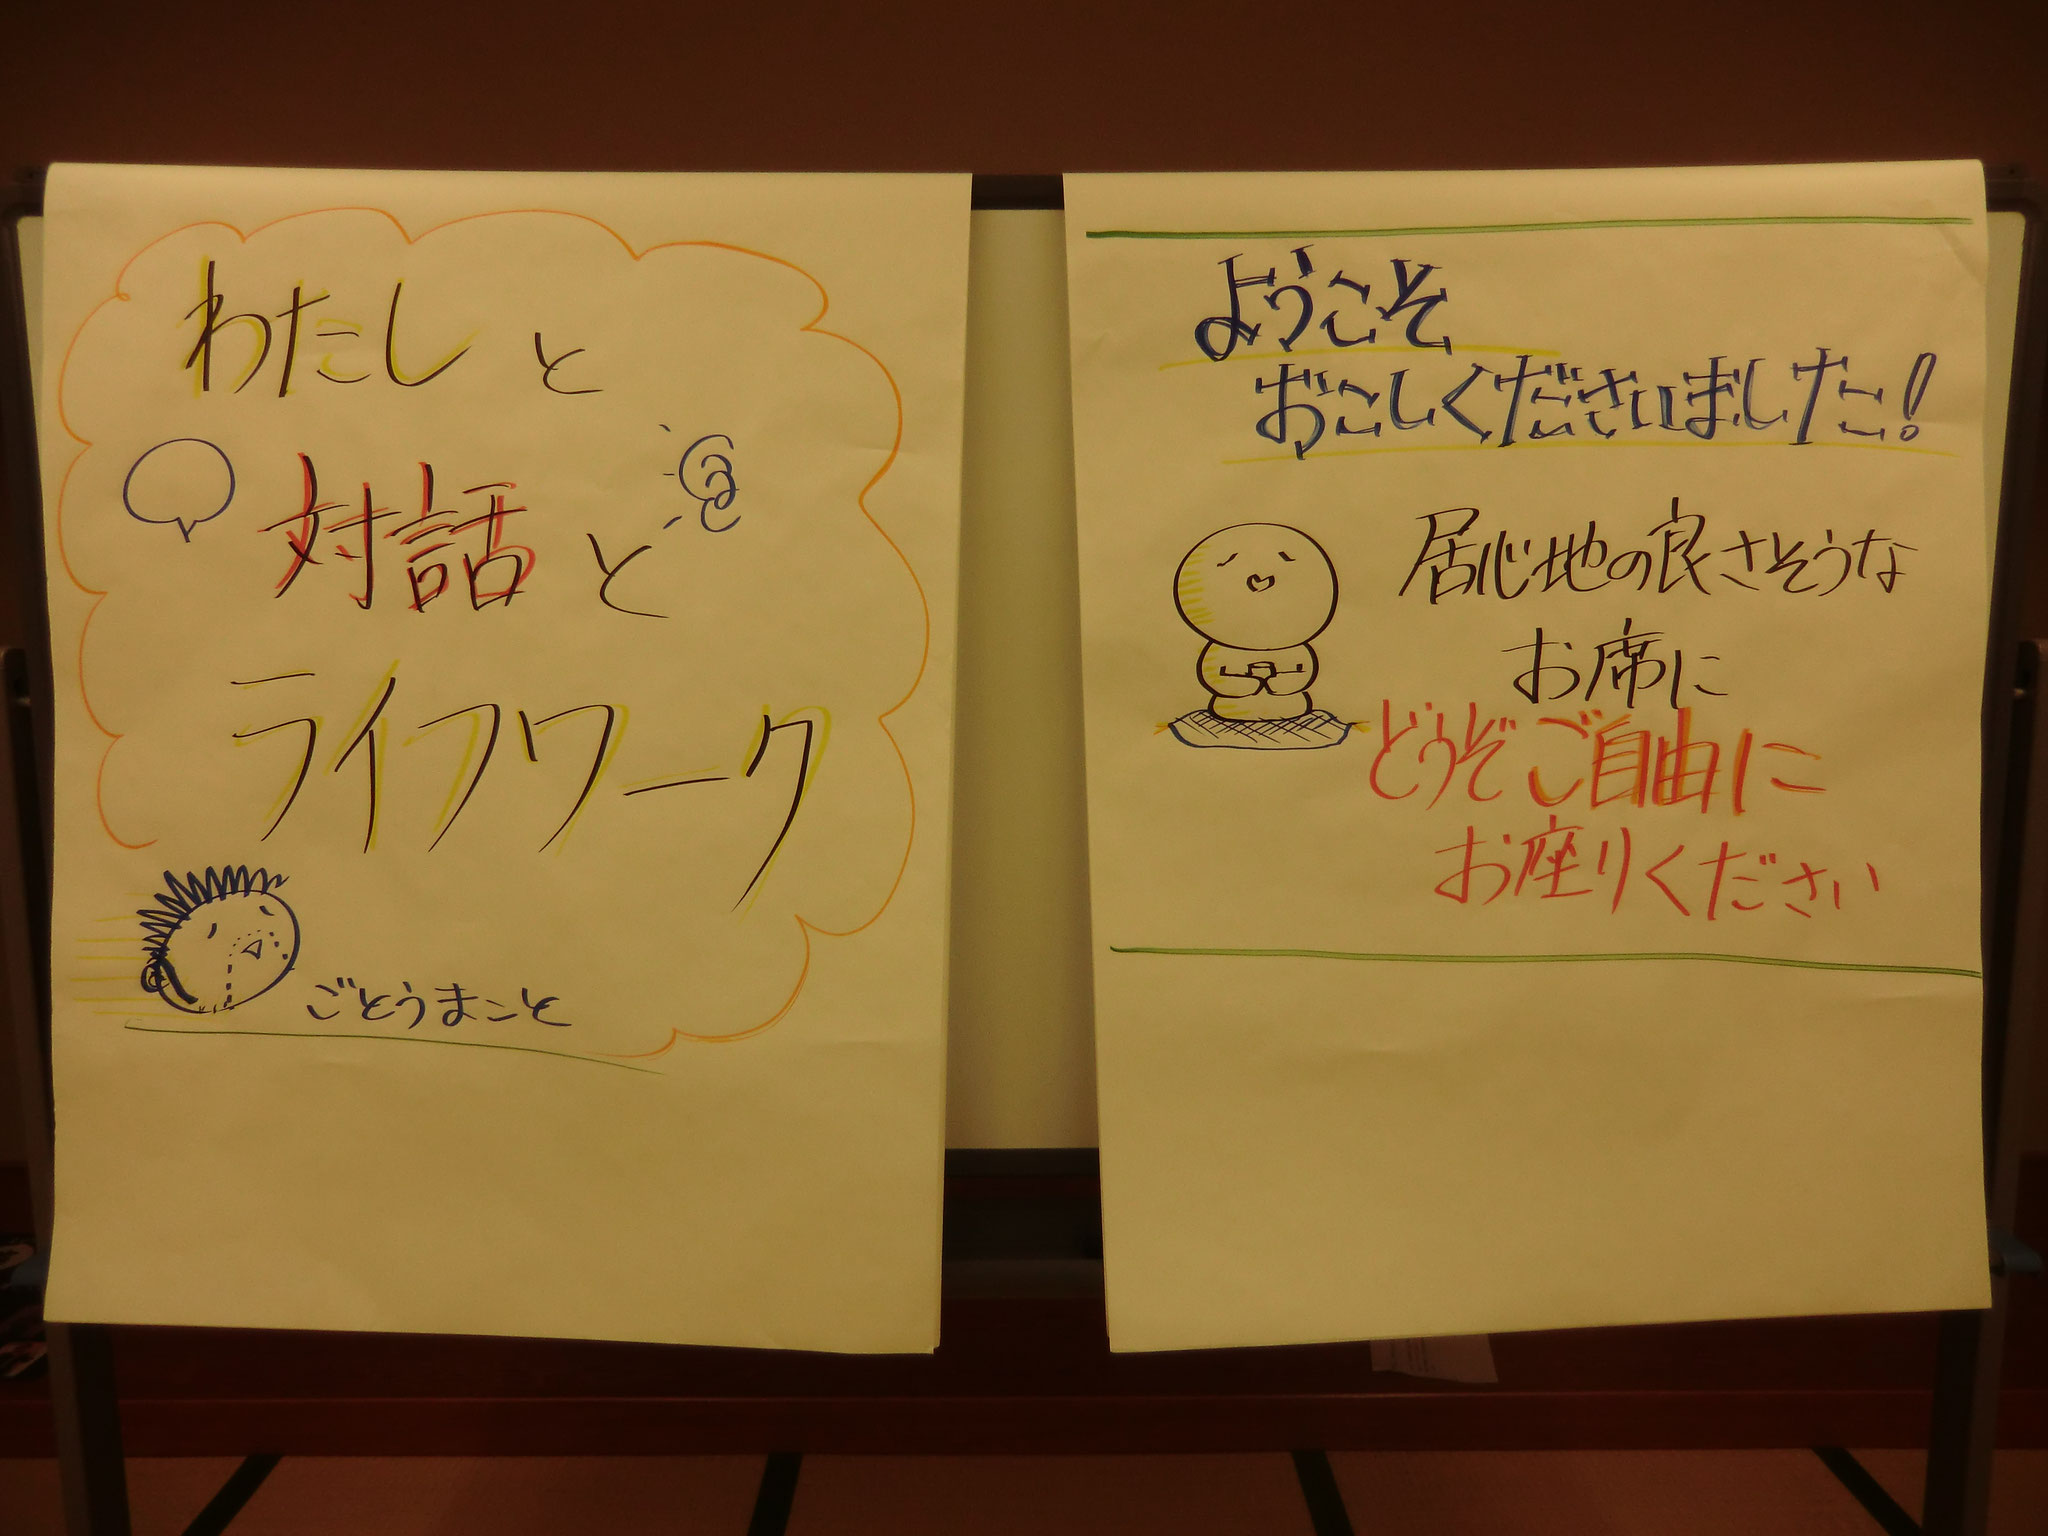 わたしと
対話と
ライフワーク
ごとうまこと
ようこそ
おこしくださいました！
居心地の良さそうな
お席に
どうぞご自由に
お座りください